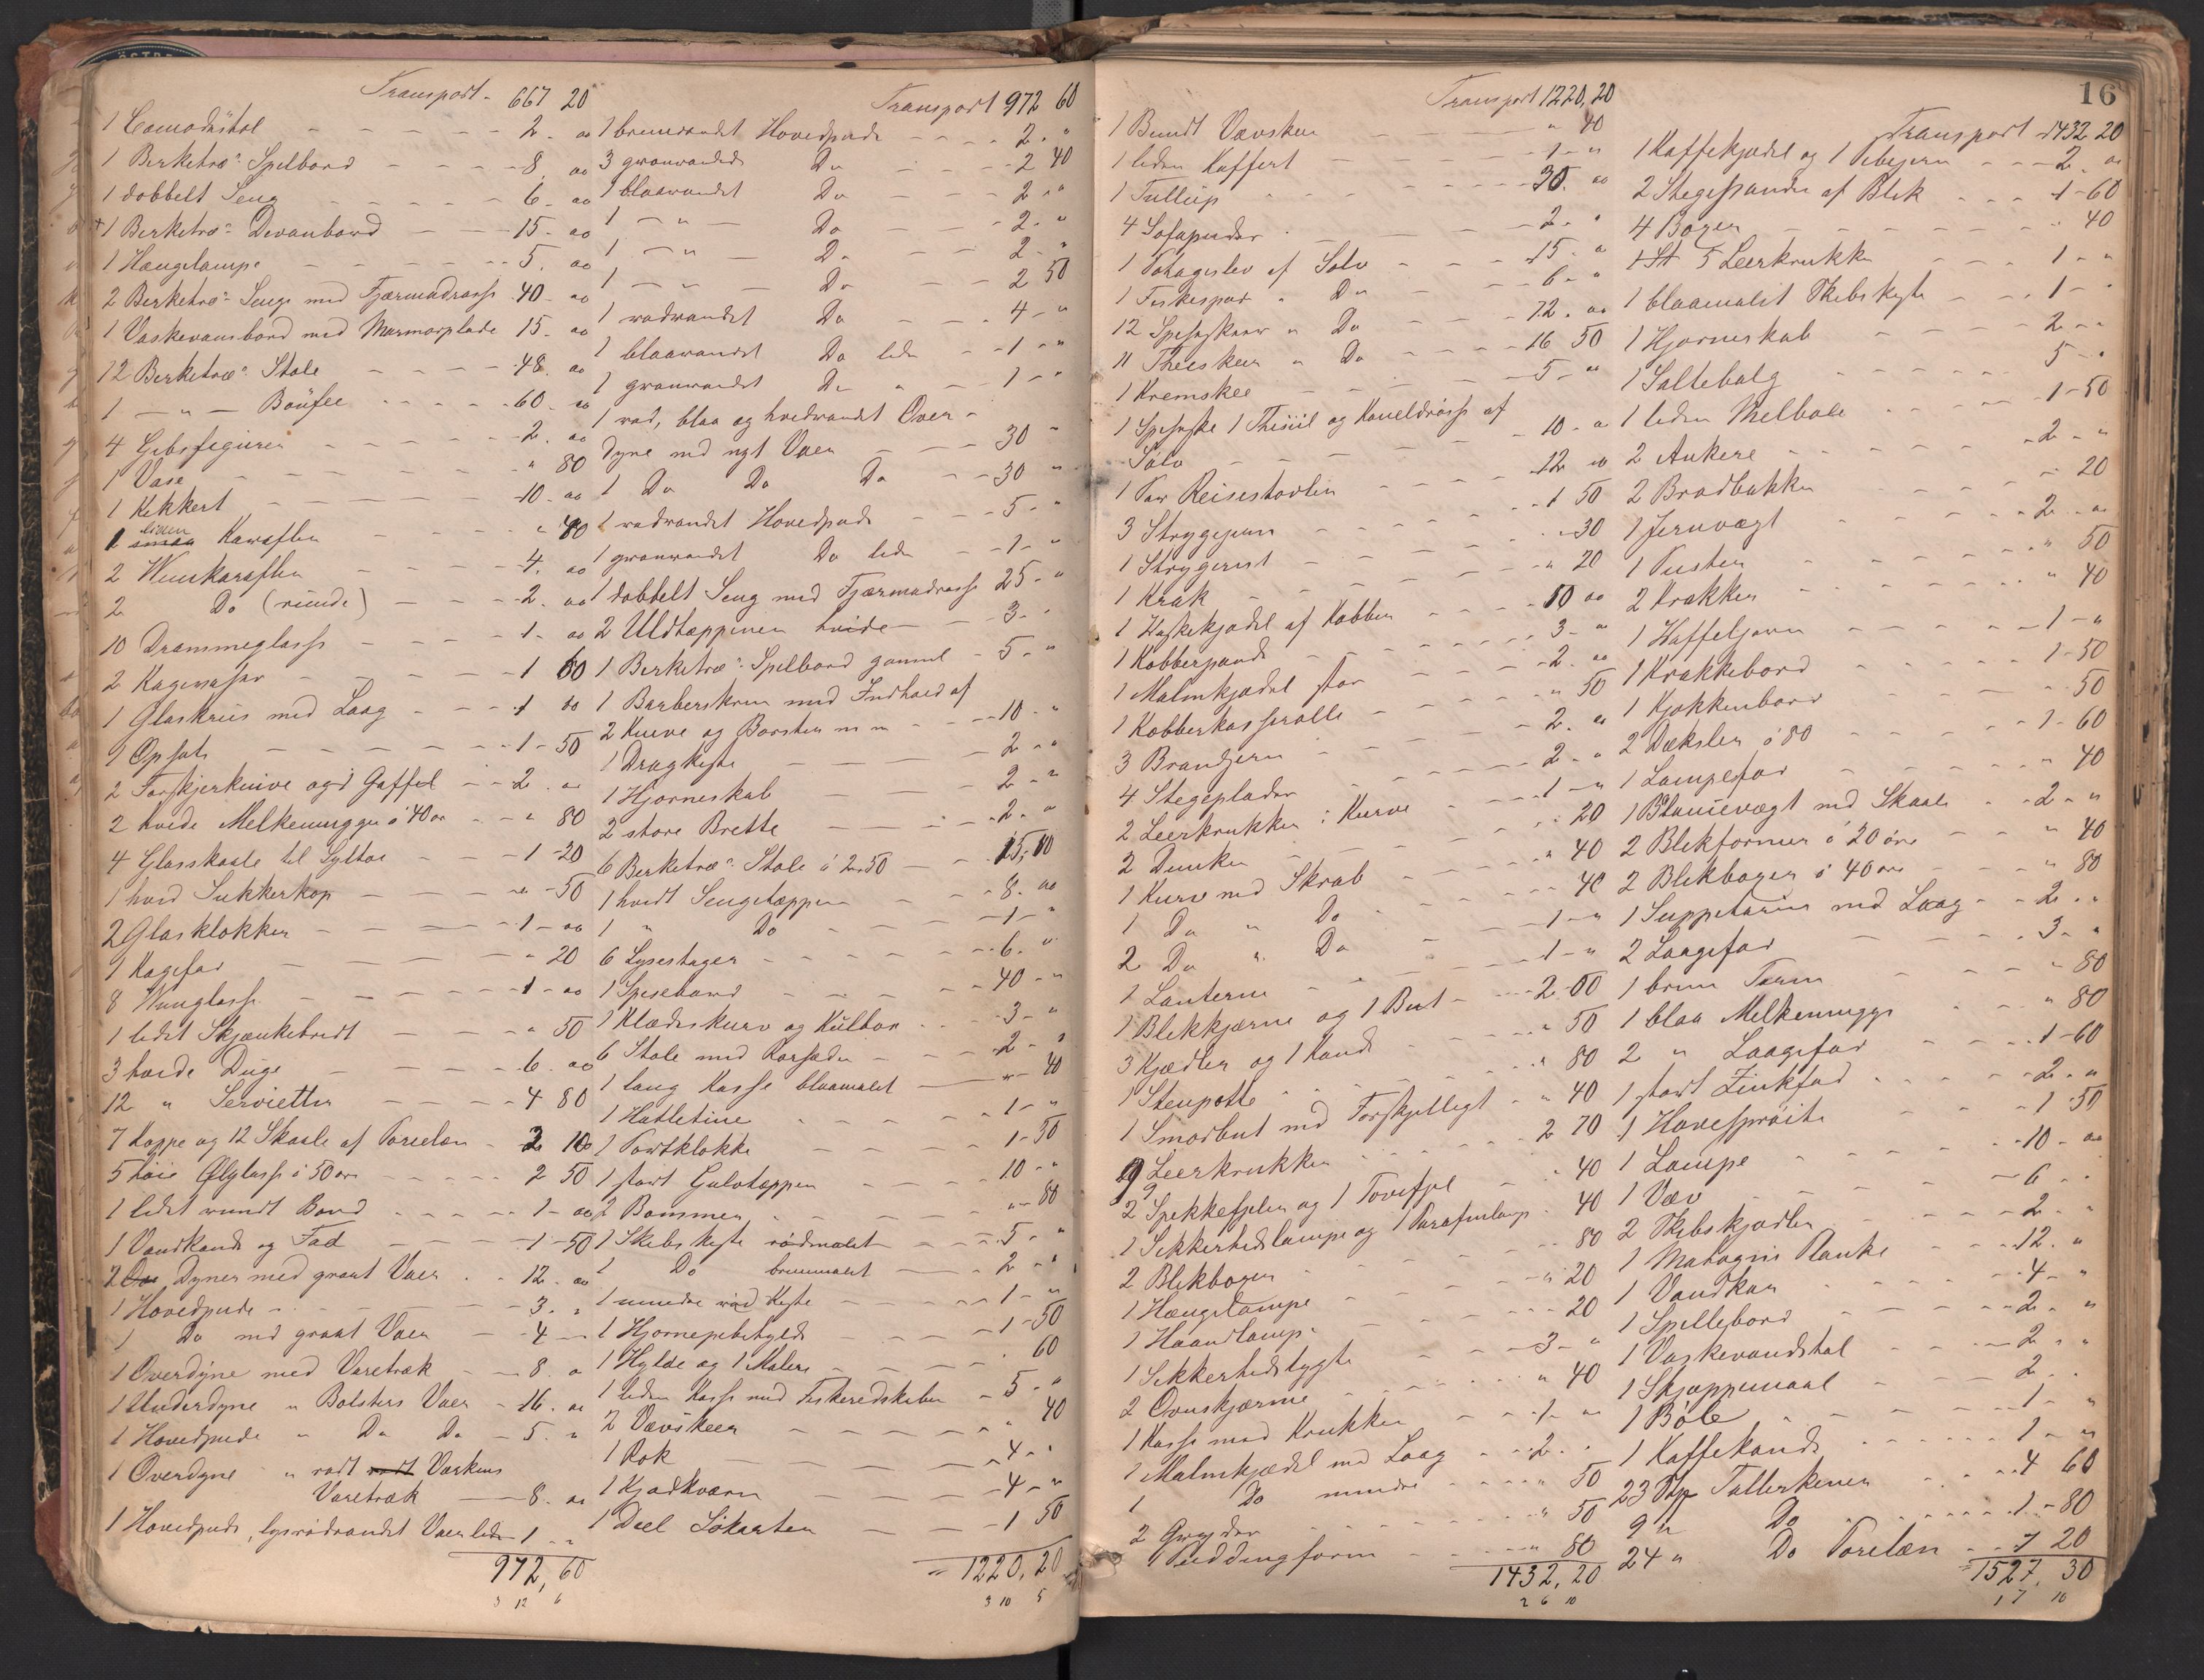 Transport - 667 20
1 Comodestol 2. 00
1 Berketræs Spelbord 8. 00
1 dobbelt Seng 6. 00
+1 Berketræs Devanbord 15. 00
1 Hængelampe 5. 00
2 Berketræs Senge med Fjærmadrass 40. 00
1 Vaskevansbord med Marmorplade 15. 00
12 Berketræs Stole 48. 00
1 — " — Boufee 60. 00
4 Gibsfigurer 2. 00
1 Vase " 80
1 Kikkert 10. 00
1 liden Karaflen " 80
2 Vinkaraflen 4. 00
2 Do (runde) 2. 00
10 Drammeglass 1. 00
2 Kagevaser 1 60
1 Glaskrus med Laag 1 00
1 Opsats 1-50
2 Forskjerknive og 1 Gaffel 2. 00
2 hvide Melkemugger á 40 øre " 80
4 Glasskaale til Syltøi 1-20
1 hvid Sukkerkop " 50
2 Glasklokker 1-00
1 Kagefad " 20
8 Vinglass 1-00
1 lidet Skjænkebredt " 50
3 hvide Duge 6. 00
12 " Servietter 4 80
7 Koppe og 12 Skaale af Porcelæn 2 10
5 høie Ølglass á 50 øre 2 50
1 lidet rundt Bord 1-00
1 Vandkande og Fad 1-50
2 Dyner med graat Vaer 12. 00
1 Hovedpude 3. "
1 Do med graat Vaer 4 -
1 Overdyne med Varetræk 8. 00
1 Underdyne " Bolsters Vaer 16. 00
1 Hovedpude " Do Do 5. "
1 Overdyne " rødt Varkens
Varetræk 8. 00
1 Hovedpude, lysrødrandet Vaer liden 1 "
972,60
3 12 6
Transport 972 60
1 brunrandet Hovedpude 2. "
3 grønrandede Do 2 40
1 blaarandet Do 2 "
1 — " — Do 2. "
1 — " — Do 2. "
1 — " — Do 2 50
1 rødrandet Do 4 - "
1 blaarandet Do liden 1 - "
1 grønrandet Do " 1 - "
1 rød, blaa og hvidrandet Over-
dyne med nyt Vaer 30 "
1 Do Do Do 30 "
1 rødrandet Hovedpude 5 - "
1 grønrandet Do liden 1 - "
1 dobbelt Seng med Fjærmadrass 25 - "
2 Uldtæppener hvide 3 - "
1 Berketræs Spelbord gammel 5 - "
1 Barberskrin med Indhold af
2 Knive og Børsten m m 10 - "
1 Dragkiste 2 - "
1 Hjørneskab 2 - "
2 store Brette 2. "
6 Berketræs Stole á 2.50 15,00
1 hvidt Sengetæppe 8. 00
1 " Do 1 - "
6 Lysestager 6. "
1 Spisebord 40 - "
1 Klædeskurv og Kulbox 3 - "
6 Stole med Rørsæder 2 - "
1 lang Kasse blaamalet " 40
1 Hatletine 1 - "
1 Portklokke 1-50
1 stort Gulvtæppe 10 - "
2 Bommer " 80
1 Skibskiste rødmalet 5. "
1 Do brunmalet 2 - "
1 mindre rød Kiste 1 - "
1 Hjørnepibehylde 1-50
1 Hylde og 1 Maleri 60
1 liden Kasse med Fiskeredskaber 5 - "
2 Vævskeer " 40
1 Rok 4 - "
1 Kjødkværn 4 - "
1 Deel Søkarter 1 50
1220,20
3 10 5
Transport 1220,20
1 Bundt Vævskeer " 40
1 liden Koffert 1 - "
1 Tullup 30. 00
4 Sofapuder 2. "
1 Potageslev af Sølv 15. 00
1 Fiskespade " Do 6 - "
12 Spiseskeer " Do 72. 00
11 Theeskeer " Do 16 50
1 Kremskee 5 - "
1 Spiseske 1 Thesiil og Kaneldøsse af
Sølv 10 - 00
1 Par Reisestøvler 12 00
3 Strygejern 1 50
1 Strygerist " 30
1 Krak " 20
1 Vaskekjædel af Kobber 10 00
1 Kobberpande 3 - "
1 Malmkjædel stor 2. 00
1 Kobberkasserolle " 50
3 Brandjern 2. 00
4 Stegeplader 2 - "
2 Leerkrukker i Kurve 1 - "
2 Dunker " 20
1 Kurv med Skrab " 40
1 Do " Do 40
2 Do " Do 1 - "
1 Lanterne 1 - "
1 Blikkjærne og 1 But 2-00
3 Kjædler og 1 Kande " 50
1 Stenpotte " 80
1 Smørbut med Forskjelligt " 40
9 Leerkrukker 2 70
2 Spekkefjeler og 1 Tovefjel " 40
1 Sikkerhedslampe og 1 Parafinlampe 40
2 Blikbøger 80
1 Hængelampe " 20
1 Haandlampe 20
1 Sikkerhedslygte 3 - "
2 Ovnskjærme " 40
1 Kasse med Krukker 1 - 00
1 Malmkjædel med Laag 2. "
1 Do mindre " 50
2 Gryder " 50
1 Puddingform " 80
1432,20
2 6 10
16
Transport 1432 20
1 Kaffekjædel og 1 Vebejern 2. 00
2 Stegepander af Blik 1-60
4 Bøger 40
5 Leerkrukker 1 - "
1 blaamalet Skibskiste 1 - "
1 Hjørneskab 2 - "
1 Saltebalg 5 - "
1 liden Melbøle 1-50
2 Ankere 2 - "
2 Brødbakker 20
1 Jernvægt 2 - 00
1 Pusten " 50
2 Krakker " 40
1 Vaffeljern 1 - "
1 Krakkebord 1-50
1 Kjøkkenbord 50
2 Dæksler á 80 1-60
1 Lampefad " 40
1 Blansievægt med Skaale 2 - "
2 Blikformer á 20 øre " 40
2 Blikbøger á 40 øre " 80
1 Suppeterin med Laag 2. "
2 Laagefad 3 - "
1 brun Terrin " 80
1 blaa Melkemugge " 80
2 " Laagefad 1-60
1 stort Zinkfad 2. "
1 Havesprøite 1 50
1 Lampe 10 - 00
1 Væv 6 - "
2 Skibskjædler 2 - "
1 Mahogni Planke 12. "
1 Vandkar 4 - "
1 Spillebord 2 - "
1 Vaskevandstol 2 - "
1 Skjæppemaal 2 -
1 Bøle 1 - "
1 Kaffekande 1 - "
23 Stk Tallerkener 4 60
9 " Do 1-80
24 " Do Porelæn 7 20
1527,30
1 7 10